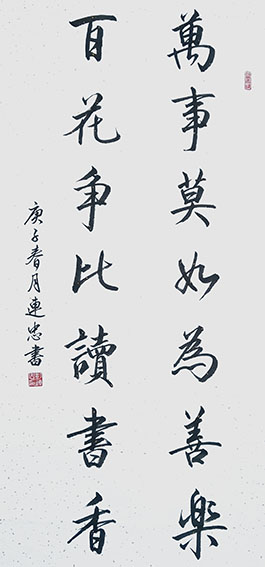 萬事莫如為善樂
百花争比讀書香
庚子春月連忠書